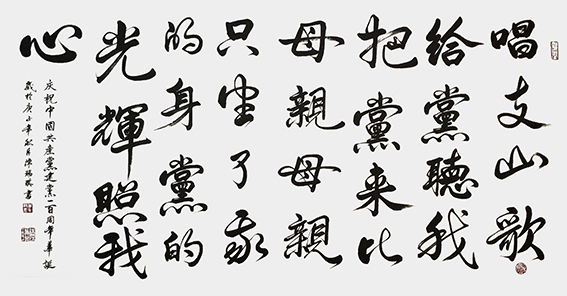 唱支山歌
给黨聽我
把黨来比
母親母親
只生了我
的身黨的
光輝照我
心
庆祝中國共產黨建黨一百周年華誕
歲於庚子年秋月陳書